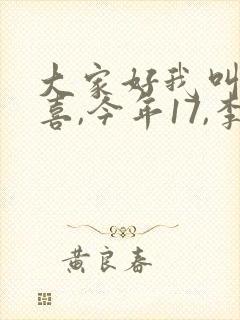 大家好我叫
喜,今年17,李
黄良春